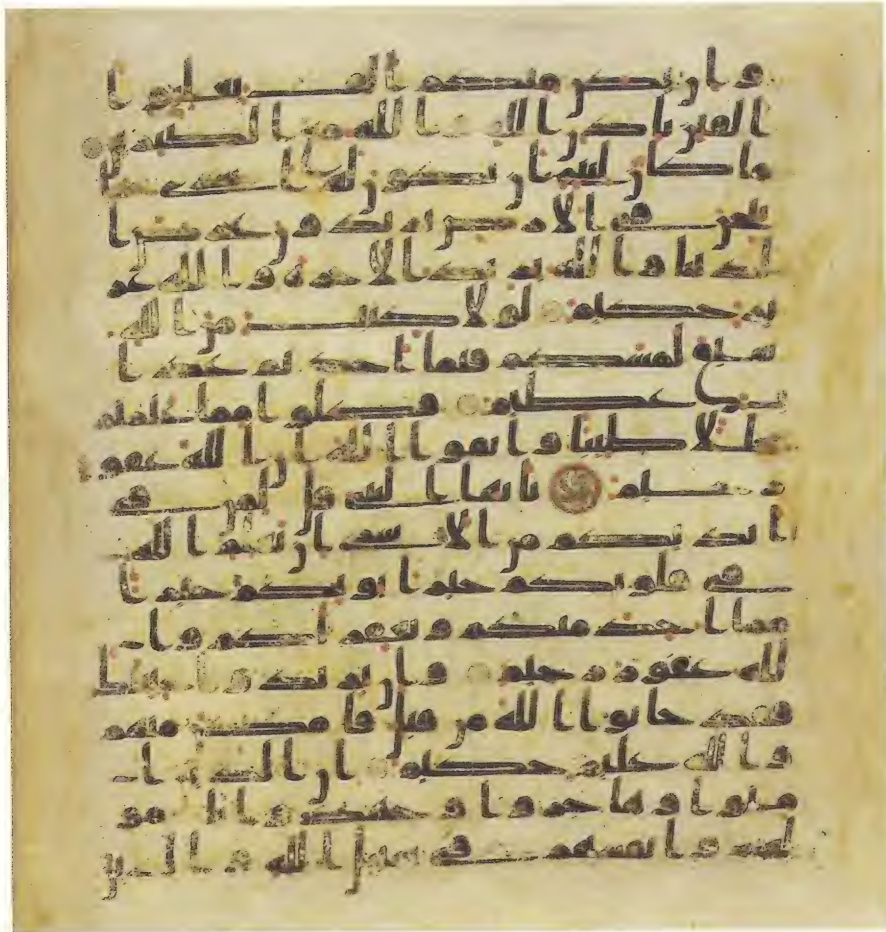 وان يكن منكم الف يغلبوا
الفين باذن الله والله مع الصبرين
ما كان لنبي ان يكون له اسرى حتى
يثخن في الارض تريدون عرض ا
لدنيا والله يريد الاخرة والله عز
يز حكيم لولا كتب من الله
سبق لمسكم فيما اخذتم عذا
ب عظيم فكلوا مما غنمتم
حللا طيبا واتقوا الله ان الله غفو
ر رحيم يايها النبي قل لمن في
ايديكم من الاسرى ان يعلم الله
في قلوبكم خيرا يوتكم خيرا
مما اخذ منكم ويغفر لكم وا
لله غفور رحيم وان يريدوا خينتك
فقد خانوا الله من قبل فامكن منهم
والله عليم حكيم ان الذين ا
منوا وهاجروا وجهدوا بامو
لهم وانفسهم في سبيل الله والذين